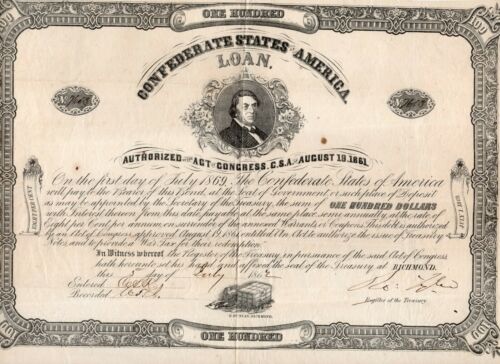 ONE HUNDRED
CONFEDERATE STATES OF AMERICA.
LOAN.
AUTHORIZED BY THE ACT OF CONGRESS, C.S.A. OF AUGUST 19.1861.
On the first day of July 1869, The Confederate States of America
will pay to the Bearer of this Bond, at the Seat of Government, or such place of Deposit
as may be appointed by the Secretary of the Treasury, the sum of ONE HUNDRED DOLLARS
with Interest thereon from this date, payable at the same place, semi annually, at the rate of
Eight per Cent per annum, on surrender of the annexed Warrants or Coupons. This debt is authorized
by an Act of Congress approved August 19, 1861, entitled An Act to authorize the issue of Treasury
Notes, and to provide a War Tax for their redemption.
In Witness whereof the Register of the Treasury, in pursuance of the said Act of Congress
hath hereunto set his hand and affixed the seal of the Treasury at RICHMOND,
this 5 day of July 1862
Entered
Recorded
Register of the Treasury
EIGHT PER CENT
RICHMOND.
ONE HUNDRED